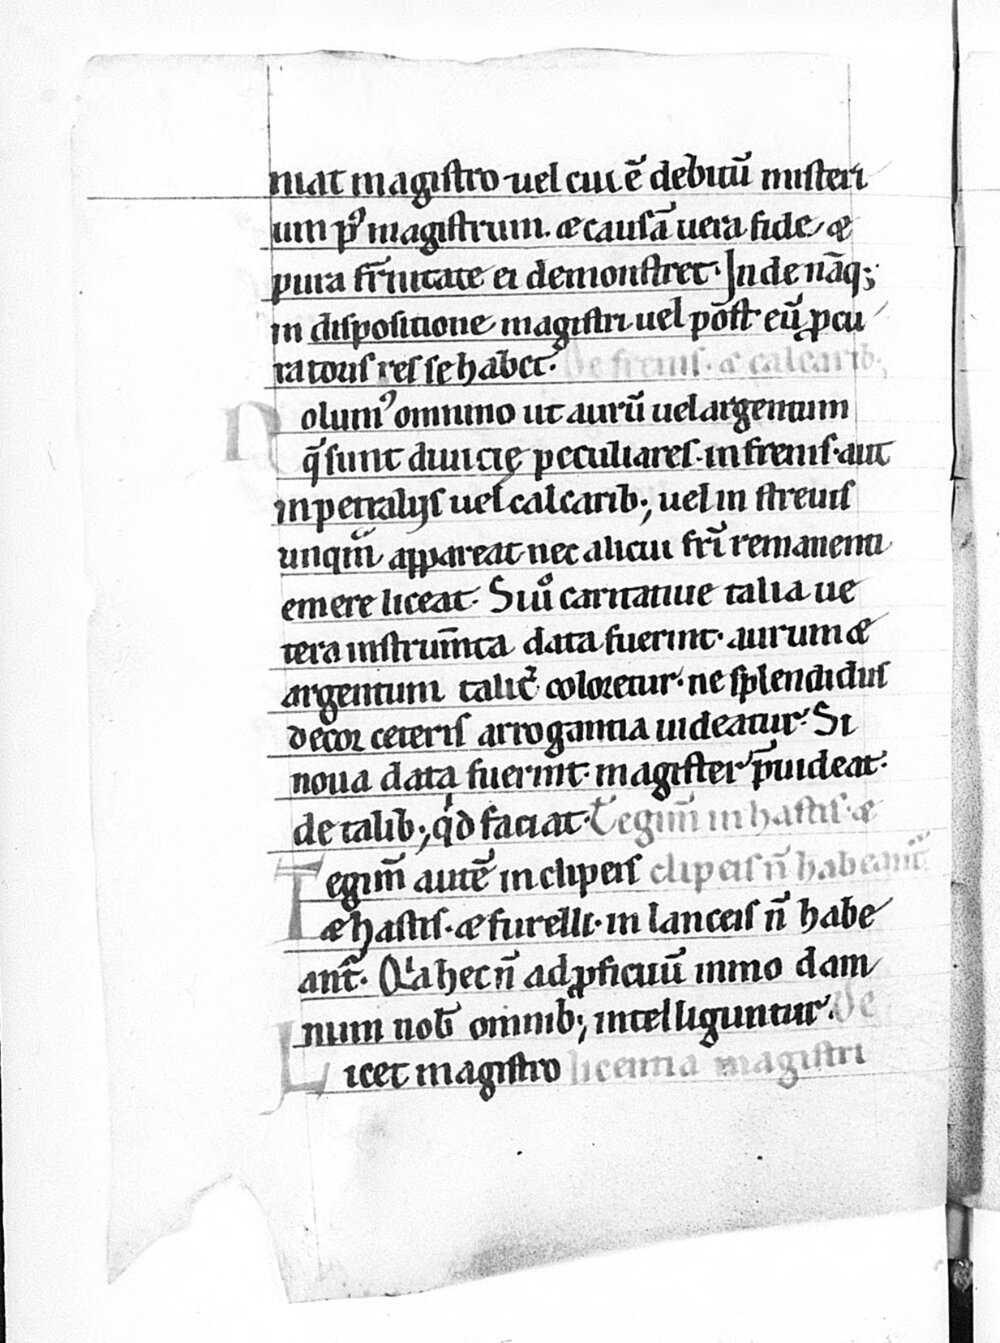 niat magistro uel cui ē debitū misteri
um p̱ magistrum. æ causā uera fide æ
pura fr̄nitate ei demonstret. Inde nāq;
in dispositione magistri uel pōst eū ꝓcu
ratoris res se habet. De frenis. æ calcarib;
Nolum᾽ omnino ut aurū uel argentum
q̄ sunt diuicię peculiares. in frenis. aut
in pectralijs uel calcarib; uel in streuis
unqm̄ appareat nec alicui fr̄i remanenti
emere liceat. Si ů caritatiue talia ue
tera instrum̄ta data fuerint. aurum æ
argentum talit̄ coloretur. ne splendidus
decor ceteris arrogantia uideatur. Si
noua data fuerint. magister p̄uideat.
de talib; qd faciat. Tegim̄ in hastis. æ
Tegim̄ autē in clipeis clipeis n̄ habeant᷑.
æ hastis. æ furelli. in lanceis n̄ habe
ant᷑. Qͥa hec n̄ ad ꝓficuū immo dam
num nob̄ omnib; intelliguntur. De
Licet magistro licentia magistri